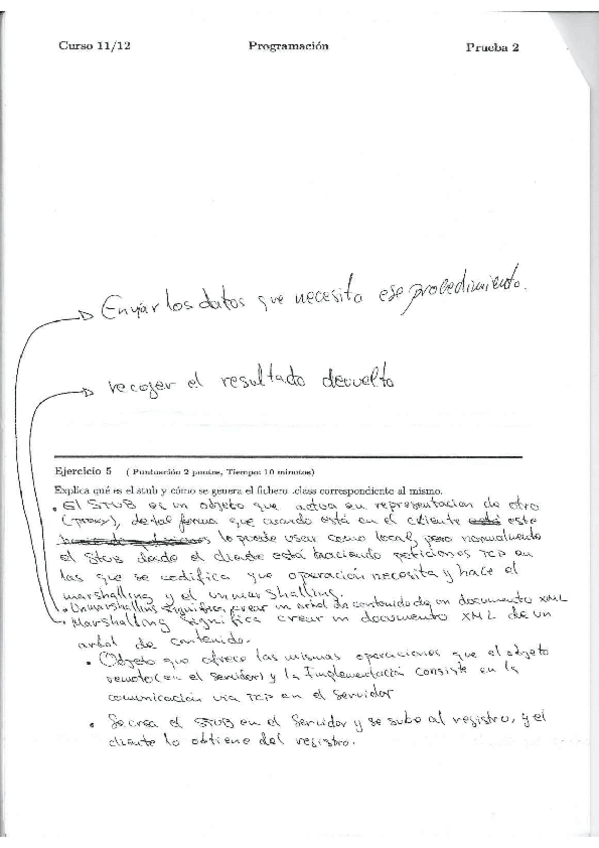 Curso 11/12 Programación Prueba 2
Enviar los datos que necesita ese procedimiento.
recoger el resultado devuelto
Ejercicio 5 ( Puntuación 2 puntos, Tiempo: 10 minutos)
Explica qué es el stub y cómo se genera el fichero .class correspondiente al mismo.
• El STUB es un objeto que actua en representacion de otro
(proxy), de tal forma que cuando está en el cliente este
lo puede usar como local, pero normalmente
el Stub dado el cliente está haciendo peticiones TCP en
las que se codifica que operación necesita y hace el
marshalling y el unmarshalling.
• Unmarshalling significa crear un arbol de contenido de un documento XML
• Marshalling significa crear un documento XML de un
arbol de contenido.
• Objeto que ofrece las mismas operaciones que el objeto
remoto (en el servidor) y la Implementación consiste en la
comunicación via TCP en el servidor
• Se crea el STUB en el Servidor y se sube al registro, y el
cliente lo obtiene del registro.